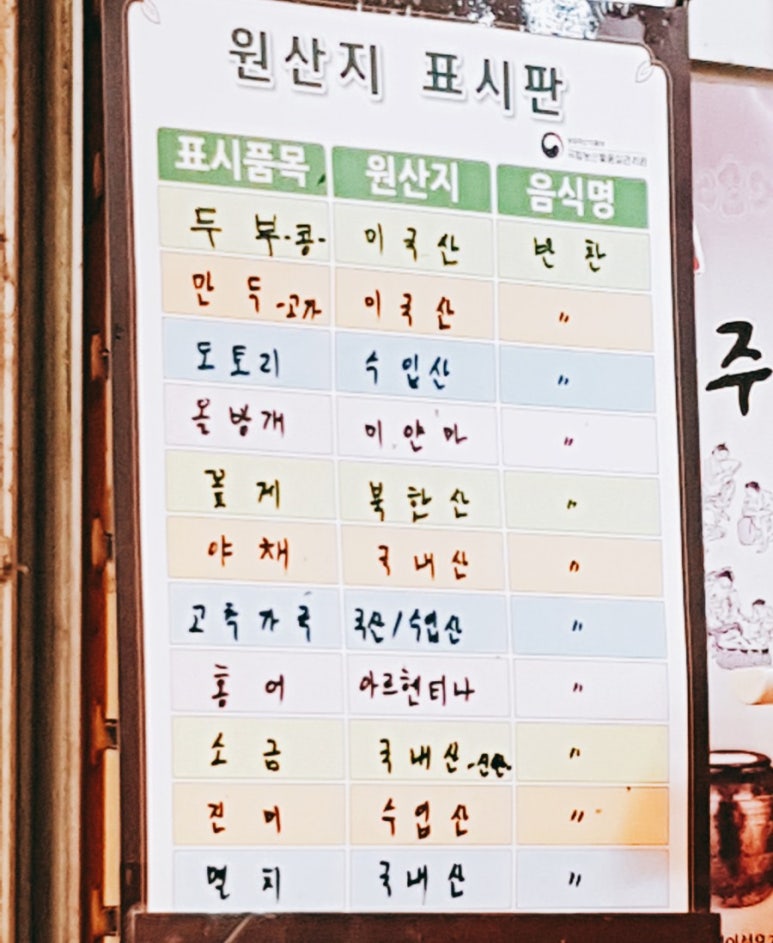 원산지 표시판
국립농산물품질관리원
표시품목 원산지 음식명
두부-콩- 이국산 반찬
만두-고기 이국산 〃
도토리 수입산 〃
올방개 미얀마 〃
꽃게 북한산 〃
야채 국내산 〃
고춧가루 국산/수입산 〃
홍어 아르헨티나 〃
소금 국내산-신안- 〃
진미 수입산 〃
멸치 국내산 〃
주